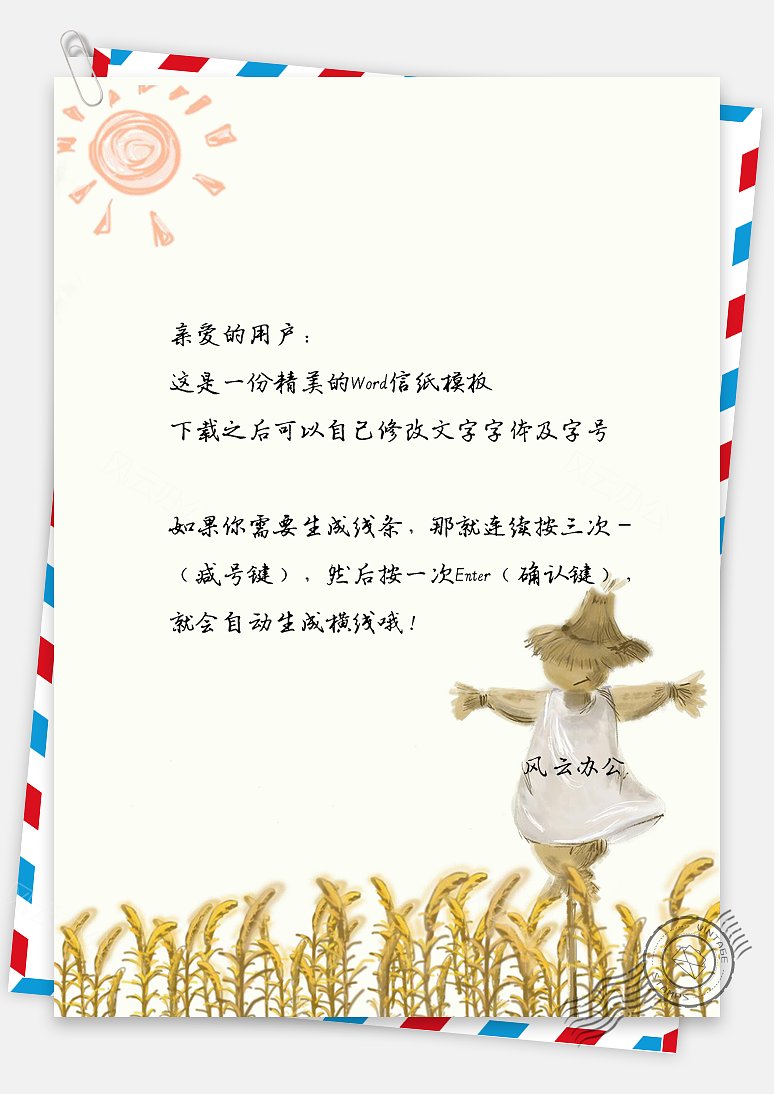 亲爱的用户：
这是一份精美的Word信纸模板
下载之后可以自己修改文字字体及字号
如果你需要生成线条，那就连续按三次－
（减号键），然后按一次Enter（确认键），
就会自动生成横线哦！
风云办公
风云办公
风云办公
VINTAGE
STAMP